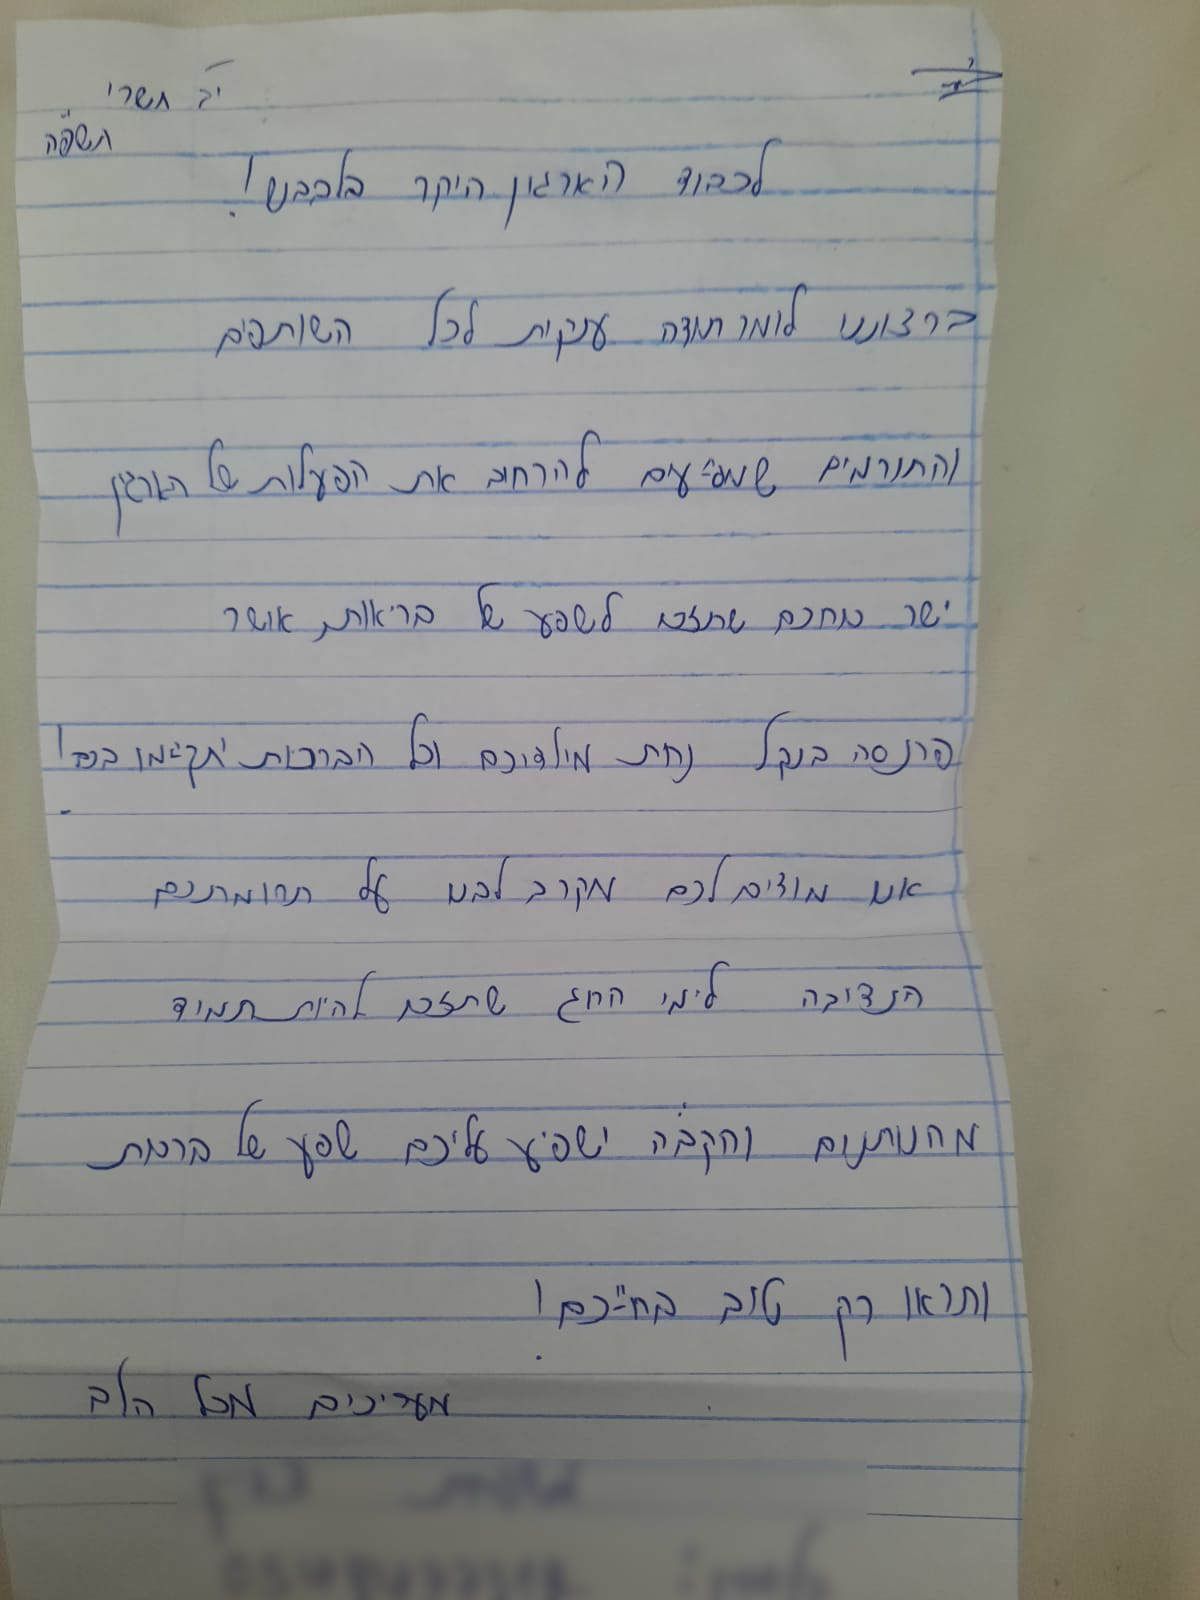 יב תשרי
תשפ"ה
לכבוד הארגון היקר בלבבנו!
ברצוננו לומר תודה ענקית לכל השותפים
והתורמים שמסייעים להרחיב את הפעלות של הארגון
ישר כוחכם שתזכו לשפע של בריאות, אושר
פרנסה בנקל נחת מילדיכם וכל הברכות יתקיימו בכם!
אנו מודים לכם מקרב לבנו על תרומתכם
הנדיבה לימי החג שתזכו להיות תמיד
מהנותנים והקב"ה ישפיע עליכם שפע של ברכות
ותראו רק טוב בחייכם!
מעריכים מכל הלב